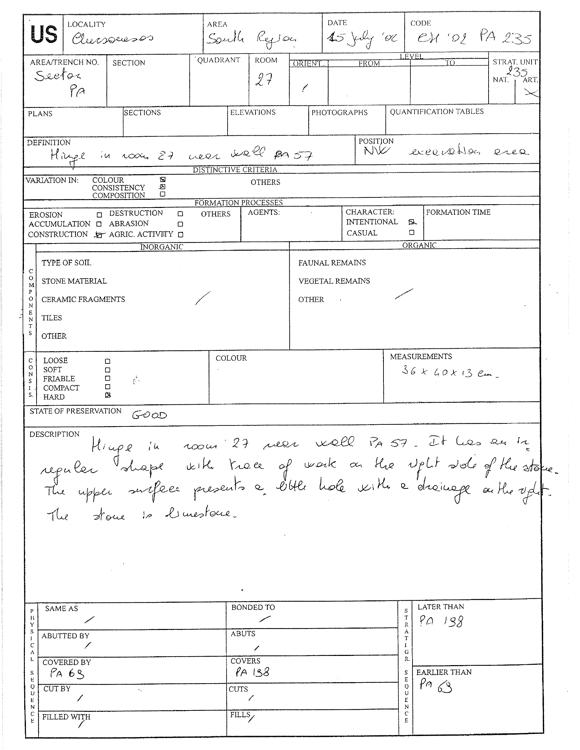 US
LOCALITY
Chersonesos
AREA
South Region
DATE
15 July '02
CODE
CH '02 PA 235
AREA/TRENCH NO.
Sector
PA
SECTION
QUADRANT
ROOM
27
LEVEL
ORIENT.
/
FROM
TO
STRAT. UNIT
235
NAT.
ART.
PLANS
SECTIONS
ELEVATIONS
PHOTOGRAPHS
QUANTIFICATION TABLES
DEFINITION
Hinge in room 27 near wall PA 57
POSITION
NW excavation area
DISTINCTIVE CRITERIA
VARIATION IN:
COLOUR
CONSISTENCY
COMPOSITION
OTHERS
FORMATION PROCESSES
EROSION
ACCUMULATION
CONSTRUCTION
DESTRUCTION
ABRASION
AGRIC. ACTIVITY
OTHERS
AGENTS:
CHARACTER:
INTENTIONAL
CASUAL
FORMATION TIME
COMPONENTS
INORGANIC
TYPE OF SOIL
STONE MATERIAL
CERAMIC FRAGMENTS /
TILES
OTHER
ORGANIC
FAUNAL REMAINS
VEGETAL REMAINS
OTHER /
CONSIS.
LOOSE
SOFT
FRIABLE
COMPACT
HARD
COLOUR
MEASUREMENTS
36 x 40 x 13 cm.
STATE OF PRESERVATION GOOD
DESCRIPTION
Hinge in room 27 near wall PA 57. It has an ir
regular shape with trace of work on the right side of the stone.
The upper surface presents a little hole with a drainage on the right.
The stone is limestone.
PHYSICAL SEQUENCE
SAME AS
/
BONDED TO
/
ABUTTED BY
/
ABUTS
/
COVERED BY
PA 63
COVERS
PA 138
CUT BY
/
CUTS
/
FILLED WITH
/
FILLS
/
STRATIGR. SEQUENCE
LATER THAN
PA 138
EARLIER THAN
PA 63